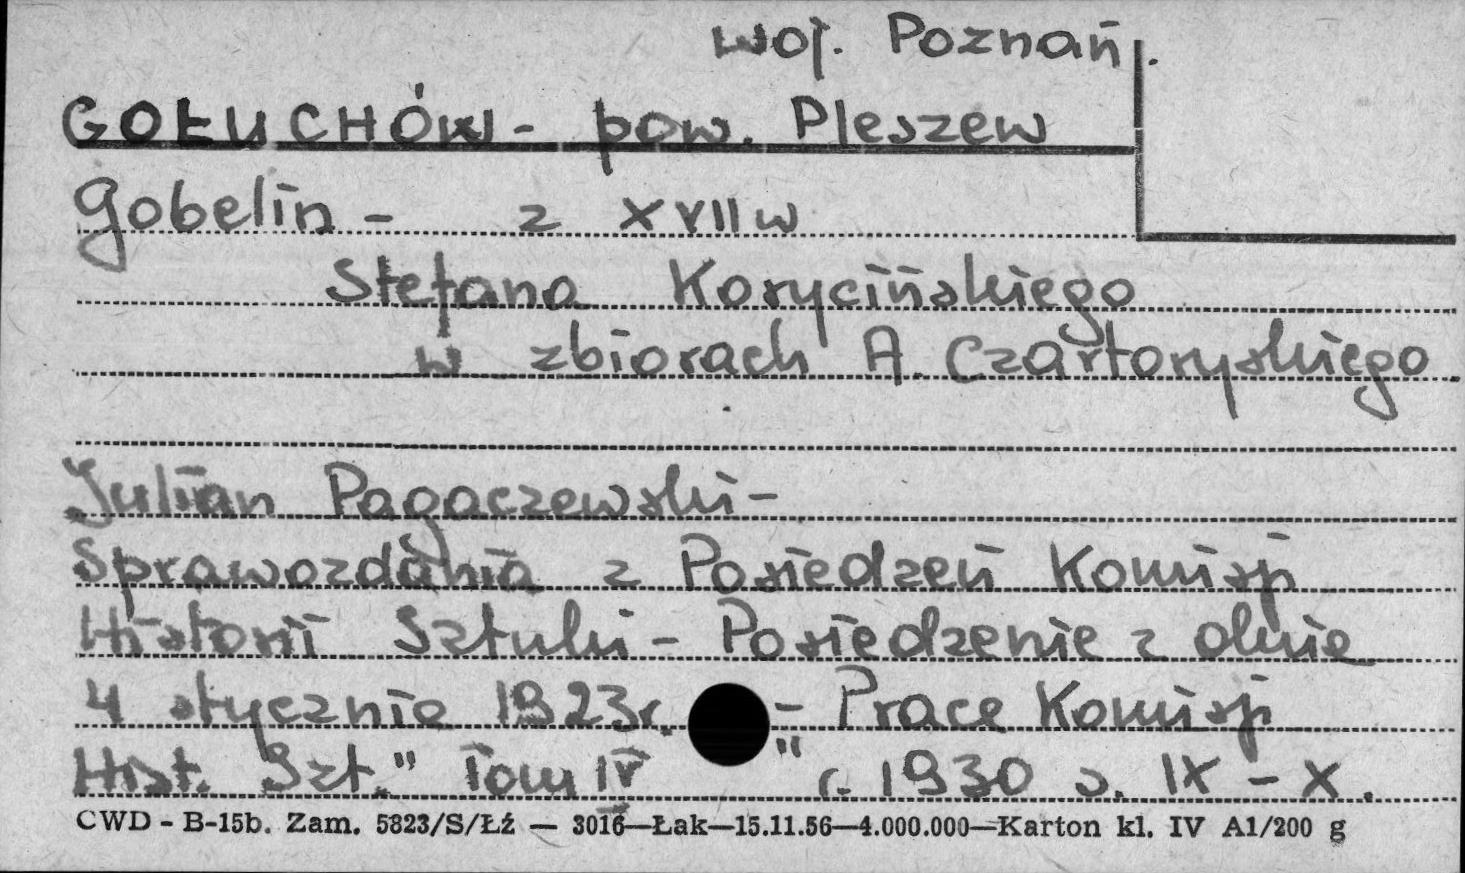 woj. Poznań.
GOŁUCHÓW - pow. Pleszew
Gobelin - z XVII w
Stefana Korycińskiego
w zbiorach A. Czartoryskiego.
Julian Pagaczewski -
Sprawozdania z Posiedzeń Komisji
Historii Sztuki - Posiedzenie z dnia
4 stycznia 1923r. - "Prace Komisji
Hist. Szt." Tom IV r. 1930 s. IX - X.
CWD - B-15b. Zam. 5823/S/Łź — 3016—Łak—15.11.56—4.000.000—Karton kl. IV A1/200 g